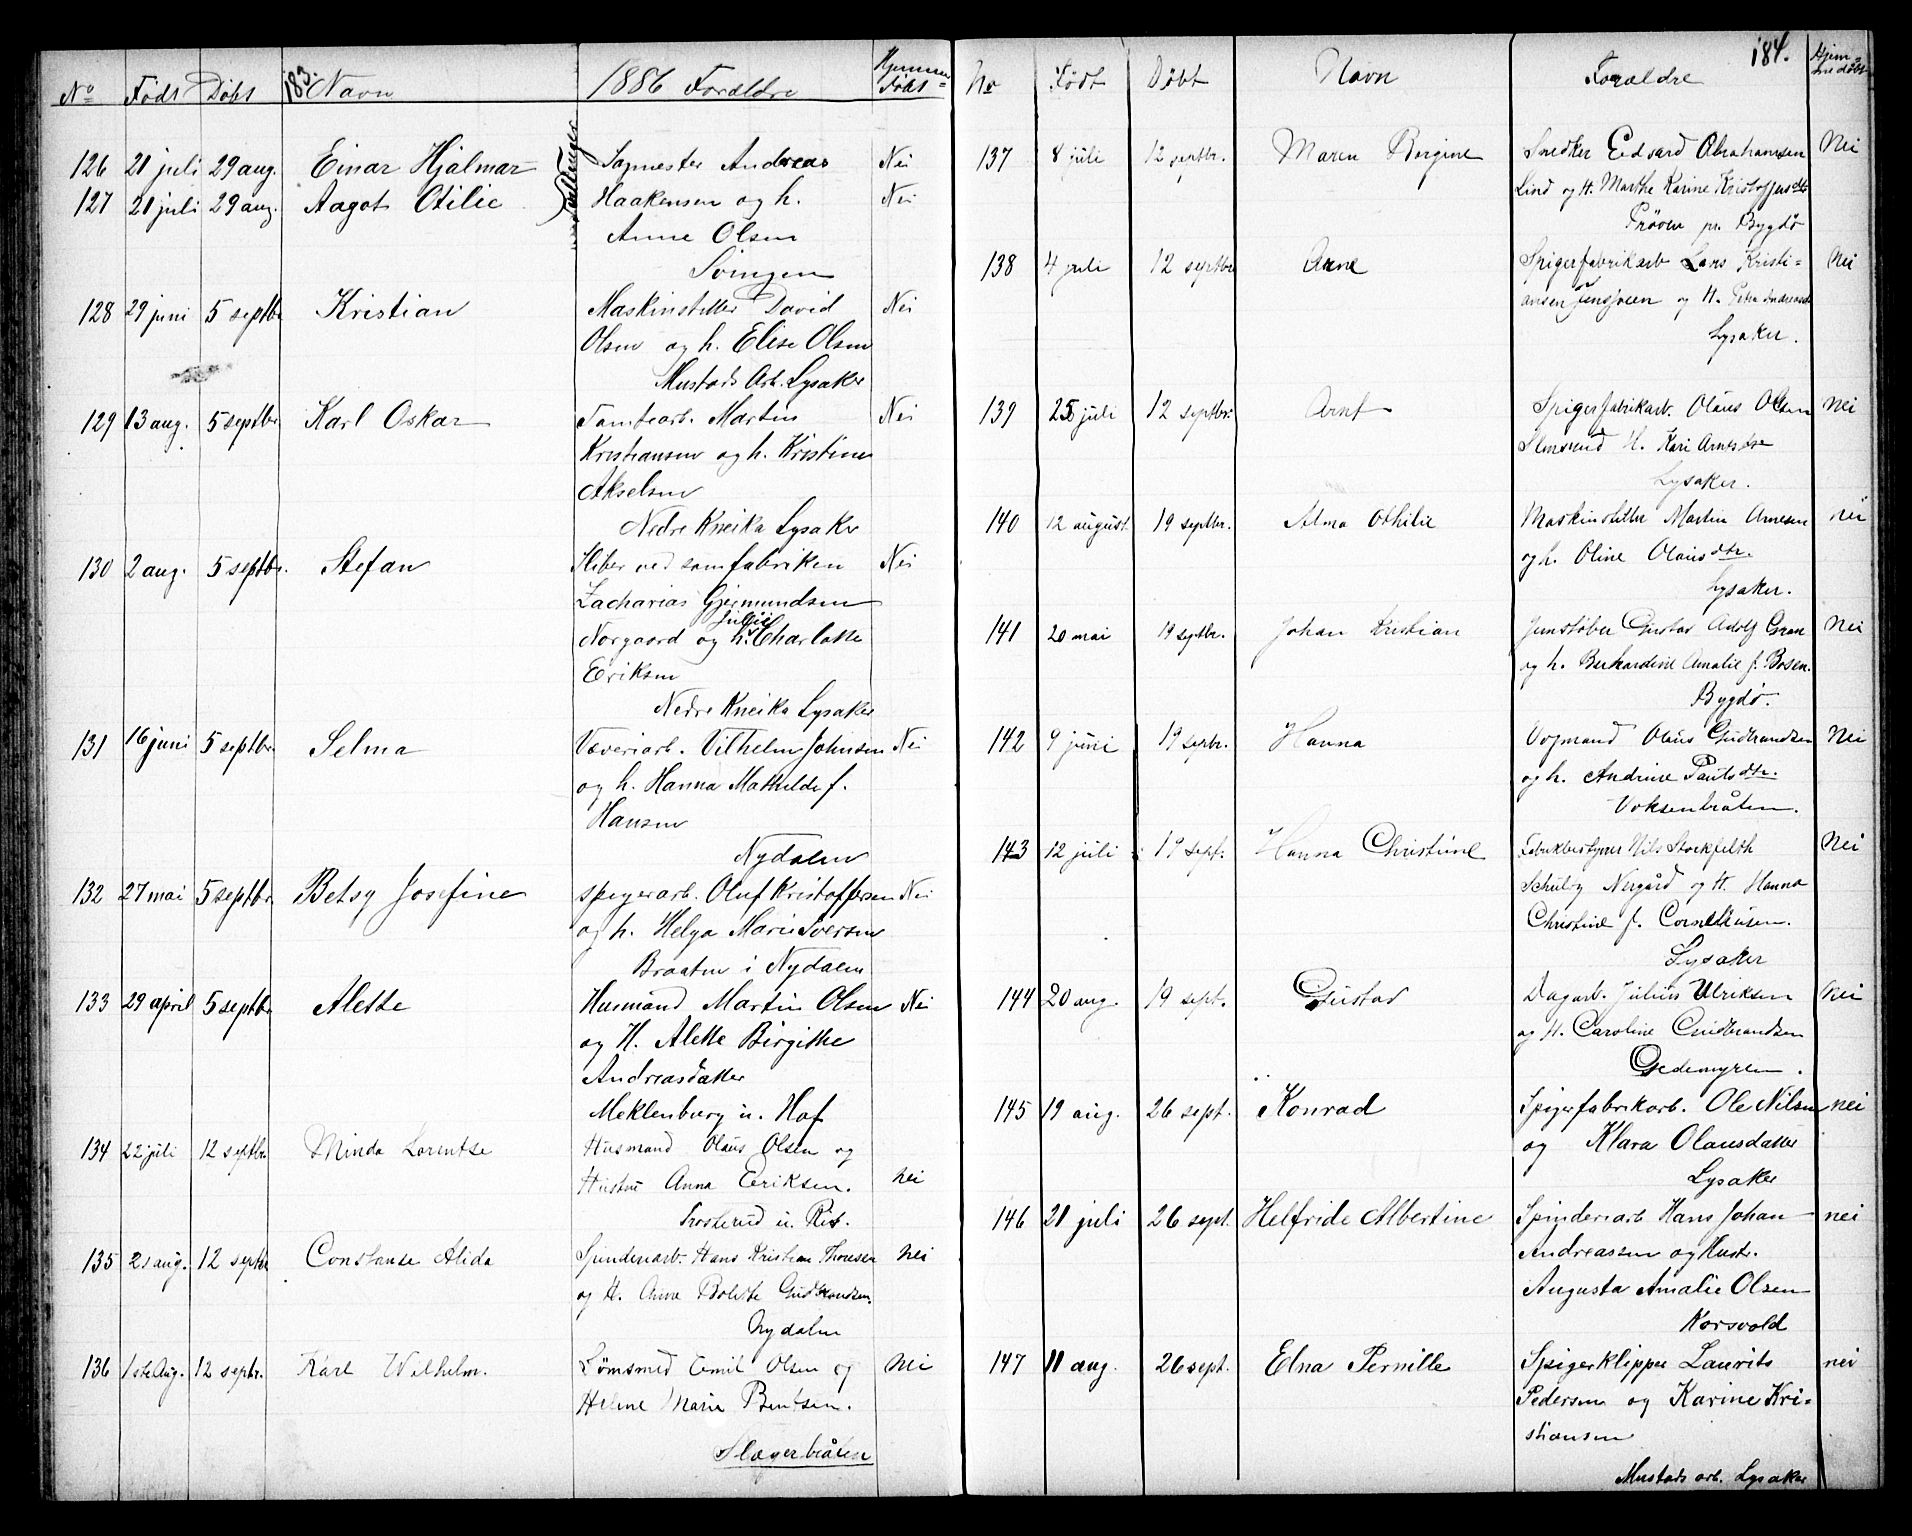 183.
No Født Døbt Navn 1886 Forældre Hjemme Født
126 21 juli 29 aug. Einar Hjalmar Tvillinger Sagmester Andreas Nei
127 21 juli 29 aug. Aagot Otilie Haakensen og h. Nei
Anne Olsen
Svingen
128 29 juni 5 septbr Kristian Maskinstiller David Nei
Olsen og h. Elise Olsen
Mustads Arb. Lysaker
129 13 aug. 5 septbr Karl Oskar Tomtearb. Martin Nei
Kristiansen og h. Kristine
Akselsen
Nedre Kneika Lysaker
130 2 aug. 5 septbr. Stefan Sliber ved sømfabriken Nei
Zacharias Gjermundsen
Julie
Norgaard og h. Charlotte
Eriksen
Nedre Kneika Lysaker
131 16 juni 5 septbr Selma Væveriarb. Vilhelm Johnsen Nei
og h. Hanna Mathilde f.
Hansen
Nydalen
132 27 mai 5 septbr Betsy Josefine spigerarb. Oluf Kristoffersen Nei
og h. Helga Marie Iversen
Braaten i Nydalen
133 29 april 5 septbr Alette Husmand Martin Olsen Nei
og H. Alette Birgitte
Andreasdatter
Meklenburg u. Hof
134 22 juli 12 septbr Minda Lorentse Husmand Olaus Olsen og
Hustru Anna Eriksen. Nei
u. Ris.
135 21 aug. 12 septbr Constanse Alida Spinderiarb. Hans Kristian Thoresen Nei
og H. Anne Bolette Gudbrandsen.
Nydalen
136 1ste Aug. 12 septbr. Karl Wilhelm. Sømsmed Emil Olsen og Nei
Helene Marie Bentsen.
Slagerbråten
184.
No Født Døbt Navn Forældre Hjemmedøbt
137 8 juli 12 septbr. Maren Birgine Snedker Edvard Abrahamsen Nei
Lind og H. Marthe Karine Kristoffersdtr
Prøven pr. Bygdø
138 4 juli 12 septbr Arne Spigerfabrikarb Lars Kristi= Nei
ansen Jensveen og H. Petra Andreasdtr
Lysaker.
139 25 juli 12 septbr. Arnt Spigerfabrikarb. Olaus Olsen Nei
H. Kari Arnesdtr
Lysaker.
140 12 august. 19 septbr. Alma Othilie Maskinstiller Martin Arnesen Nei
og h. Oline Olausdtr.
Lysaker.
141 20 mai 19 septbr. Johan Kristian Jernstøber Gustav Adolf Gran Nei
og h. Berhardine Amalie f. Bosen.
Bygdø.
142 9 juni 19 septbr. Hanna Vognmand Olaus Gudbrandsen Nei
og h. Andrine Paulsdtr.
Voksenbråten.
143 12 juli 19 sept. Hanna Christine Fabrikbestyrer Nils Stockfleth Nei
Schulz Nergård og H. Hanna
Christine f. Corneliusen.
Lysaker
144 20 aug. 19 sept. Gustav Dagarb. Julius Ulriksen Nei
og H. Caroline Gudbrandsen
Gedemyren.
145 19 aug. 26 sept. Konrad Spigerfabrikarb. Ole Nilsen nei
og Klara Olausdatter
Lysaker
146 21 juli 26 sept. Helfride Albertine Spinderiarb Hans Johan nei
Andreassen og Hustr.
Augusta Amalie Olsen
Korsvold
147 11 aug. 26 sept. Elna Pernille Spigerklipper Laurits nei
Pedersen og Karine Kri=
stiansen
Mustads arb. Lysaker